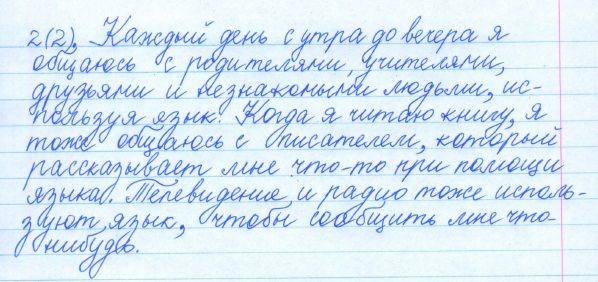 2(2). Каждый день с утра до вечера я
общаюсь с родителями, учителями,
друзьями и незнакомыми людьми, ис-
пользуя язык. Когда я читаю книгу, я
тоже общаюсь с писателем, который
рассказывает мне что-то при помощи
языка. Телевидение и радио тоже исполь-
зуют язык, чтобы сообщить мне что-
нибудь.